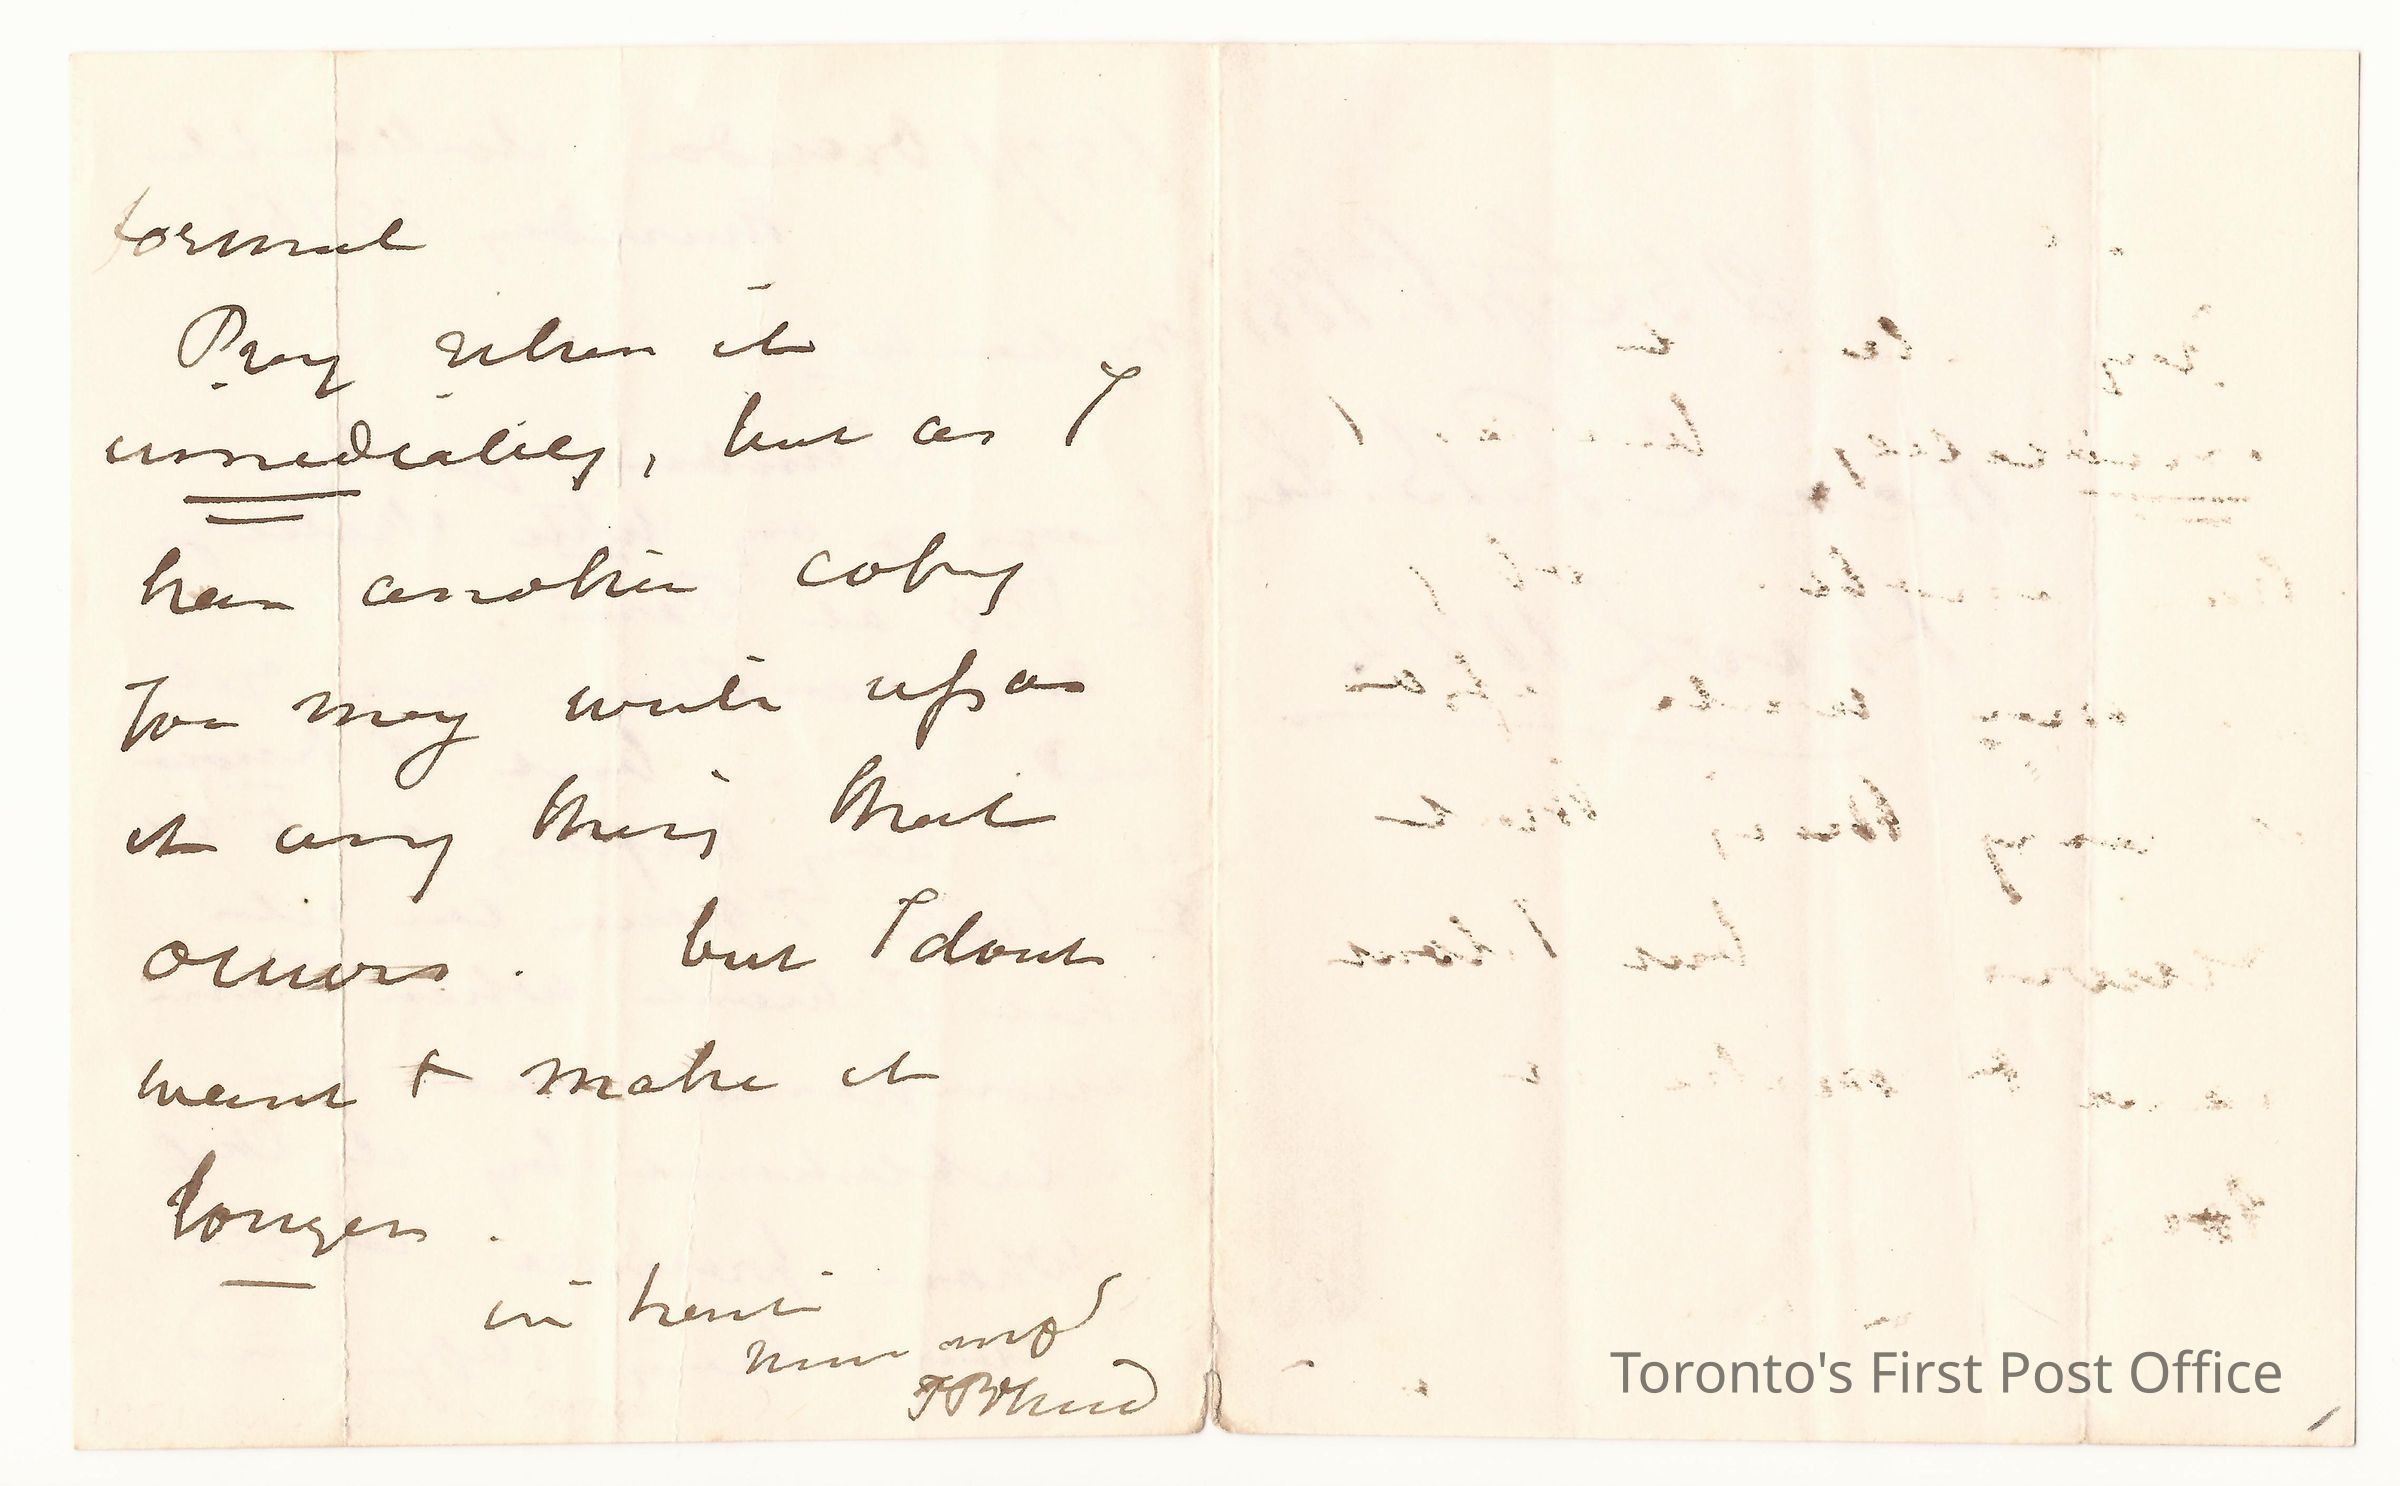 formal
Pray return it
immediately, but as I
have another copy
You may write upon
it any thing that
occurs. but I dont
want to make it
longer.
in haste
Toronto's First Post Office